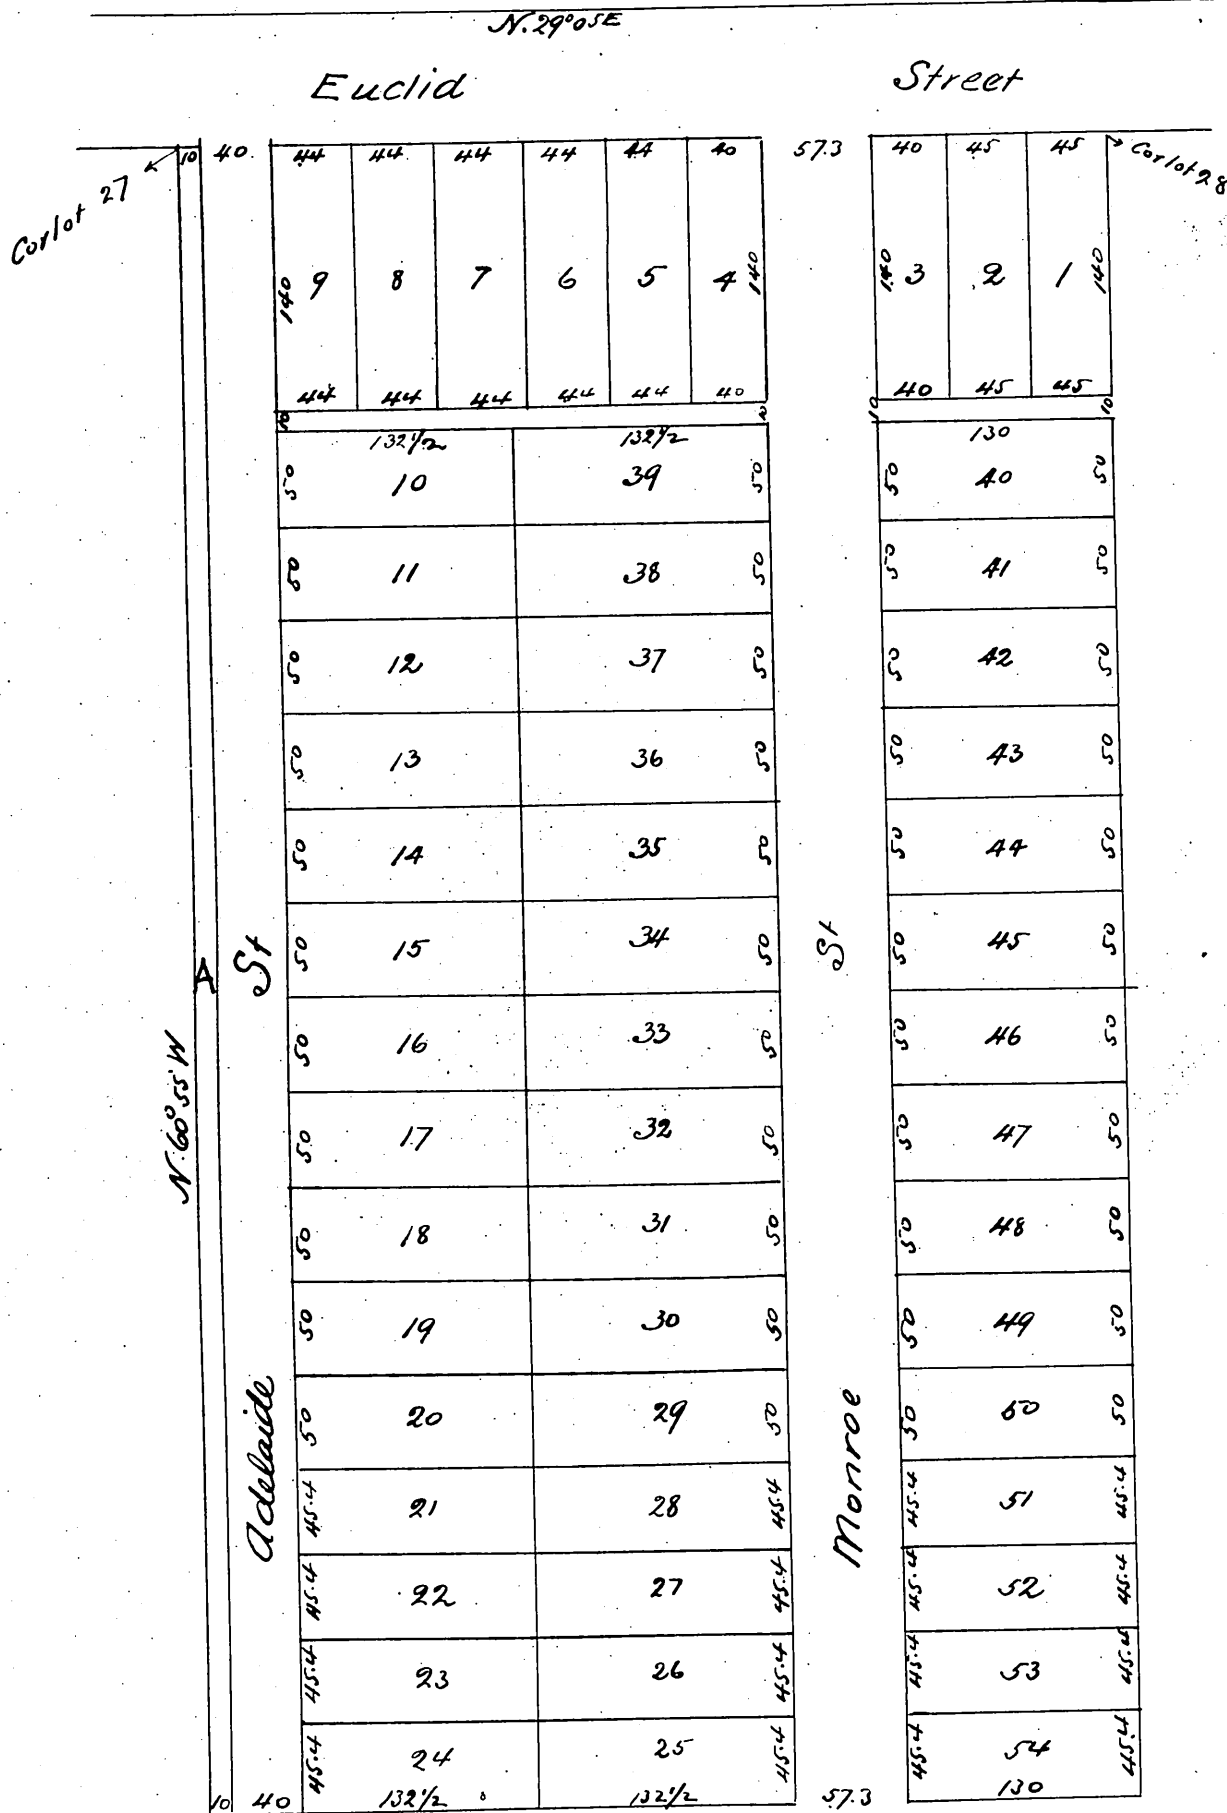 N. 29° 05 E
Euclid Street
Cor lot 27
10 40 44 44 44 44 44 40 57.3 40 45 45 Cor lot 28
140 9 8 7 6 5 4 140 140 3 2 1 140
44 44 44 44 44 40 40 45 45
10 10 10
132 1/2 132 1/2 130
50 10 39 50 50 40 50
50 11 38 50 50 41 50
50 12 37 50 50 42 50
50 13 36 50 50 43 50
50 14 35 50 50 44 50
50 15 34 50 50 45 50
A
50 16 33 50 50 46 50
N. 60° 55' W
50 17 32 50 50 47 50
50 18 31 50 50 48 50
50 19 30 50 50 49 50
50 20 29 50 50 50 50
Adelaide St
Monroe St
45.4 21 28 45.4 45.4 51 45.4
45.4 22 27 45.4 45.4 52 45.4
45.4 23 26 45.4 45.4 53 45.4
45.4 24 25 45.4 45.4 54 45.4
10 40 132 1/2 132 1/2 57.3 130